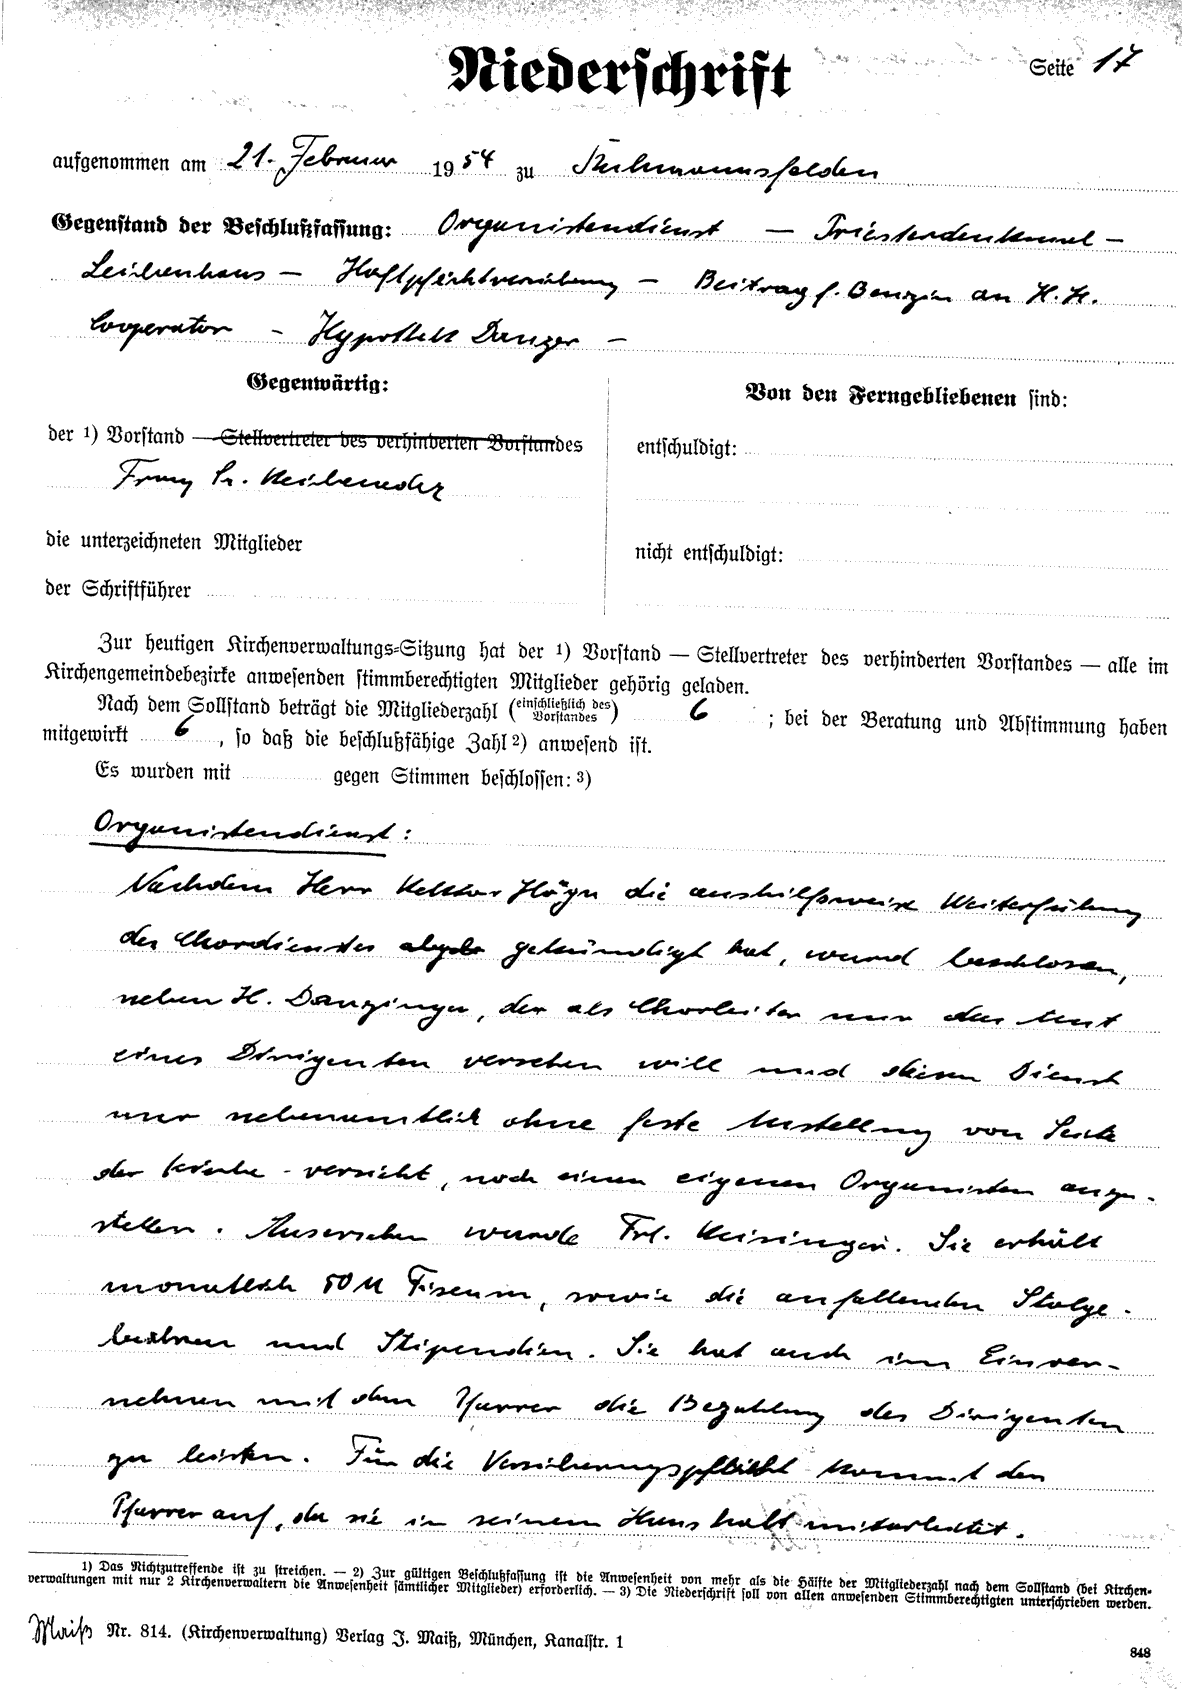 Niederschrift
Seite 17
aufgenommen am 21. Februar 1954 zu Ruhmannsfelden
Gegenstand der Beschlußfassung: Organistendienst – Priesterdenkmal –
Leichenhaus – Haftpflichtversicherung – Beitrag f. Benzin an H. H.
Cooperator – Hypothek Danzer –
Gegenwärtig:
der 1) Vorstand — Stellvertreter des verhinderten Vorstandes
Franz S. Reicheneder
die unterzeichneten Mitglieder
der Schriftführer
Von den Ferngebliebenen sind:
entschuldigt:
nicht entschuldigt:
Zur heutigen Kirchenverwaltungs-Sitzung hat der 1) Vorstand — Stellvertreter des verhinderten Vorstandes — alle im
Kirchengemeindebezirke anwesenden stimmberechtigten Mitglieder gehörig geladen.
Nach dem Sollstand beträgt die Mitgliederzahl (einschließlich des Vorstandes) 6 ; bei der Beratung und Abstimmung haben
mitgewirkt 6 , so daß die beschlußfähige Zahl 2) anwesend ist.
Es wurden mit gegen Stimmen beschlossen: 3)
Organistendienst :
Nachdem Herr Rektor Högn die aushilfsweise Weiterführung
des Chordienstes gekündigt hat, wurd beschlossen,
neben H. Danzinger, der als Chorleiter nur das Amt
eines Dirigenten versehen will und diesen Dienst
nur nebenamtlich ohne feste Anstellung von Seite
der Kirche - versieht, noch einen eigenen Organisten anzu-
stellen. Ausersehen wurde Frl. Meisinger. Sie erhält
monatlich 50 M Fixum, sowie die anfallenden Stolge-
bühren und Stipendien. Sie hat auch im Einver-
nehmen mit dem Pfarrer die Bezahlung des Dirigenten
zu leisten. Für die Versicherungspflicht kommt der
Pfarrer auf, da sie in seinem Haushalt mitarbeitet.
1) Das Nichtzutreffende ist zu streichen. — 2) Zur gültigen Beschlußfassung ist die Anwesenheit von mehr als die Hälfte der Mitgliederzahl nach dem Sollstand (bei Kirchen-
verwaltungen mit nur 2 Kirchenverwaltern die Anwesenheit sämtlicher Mitglieder) erforderlich. — 3) Die Niederschrift soll von allen anwesenden Stimmberechtigten unterschrieben werden.
Maiß Nr. 814. (Kirchenverwaltung) Verlag J. Maiß, München, Kanalstr. 1
848